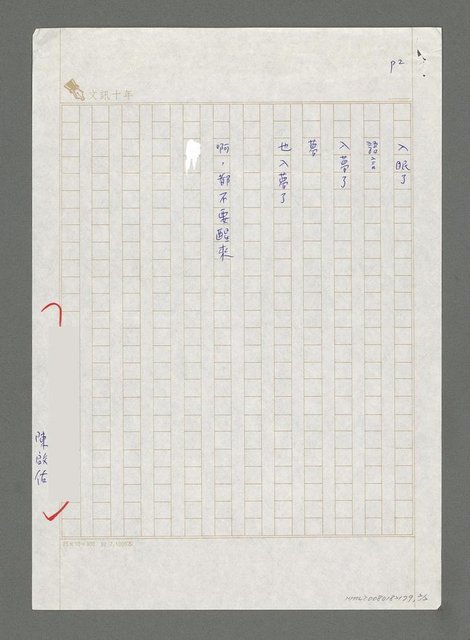 p2
文訊十年
入眠了
語言
入夢了
夢
也入夢了
啊，都不要醒來
陳啟佑